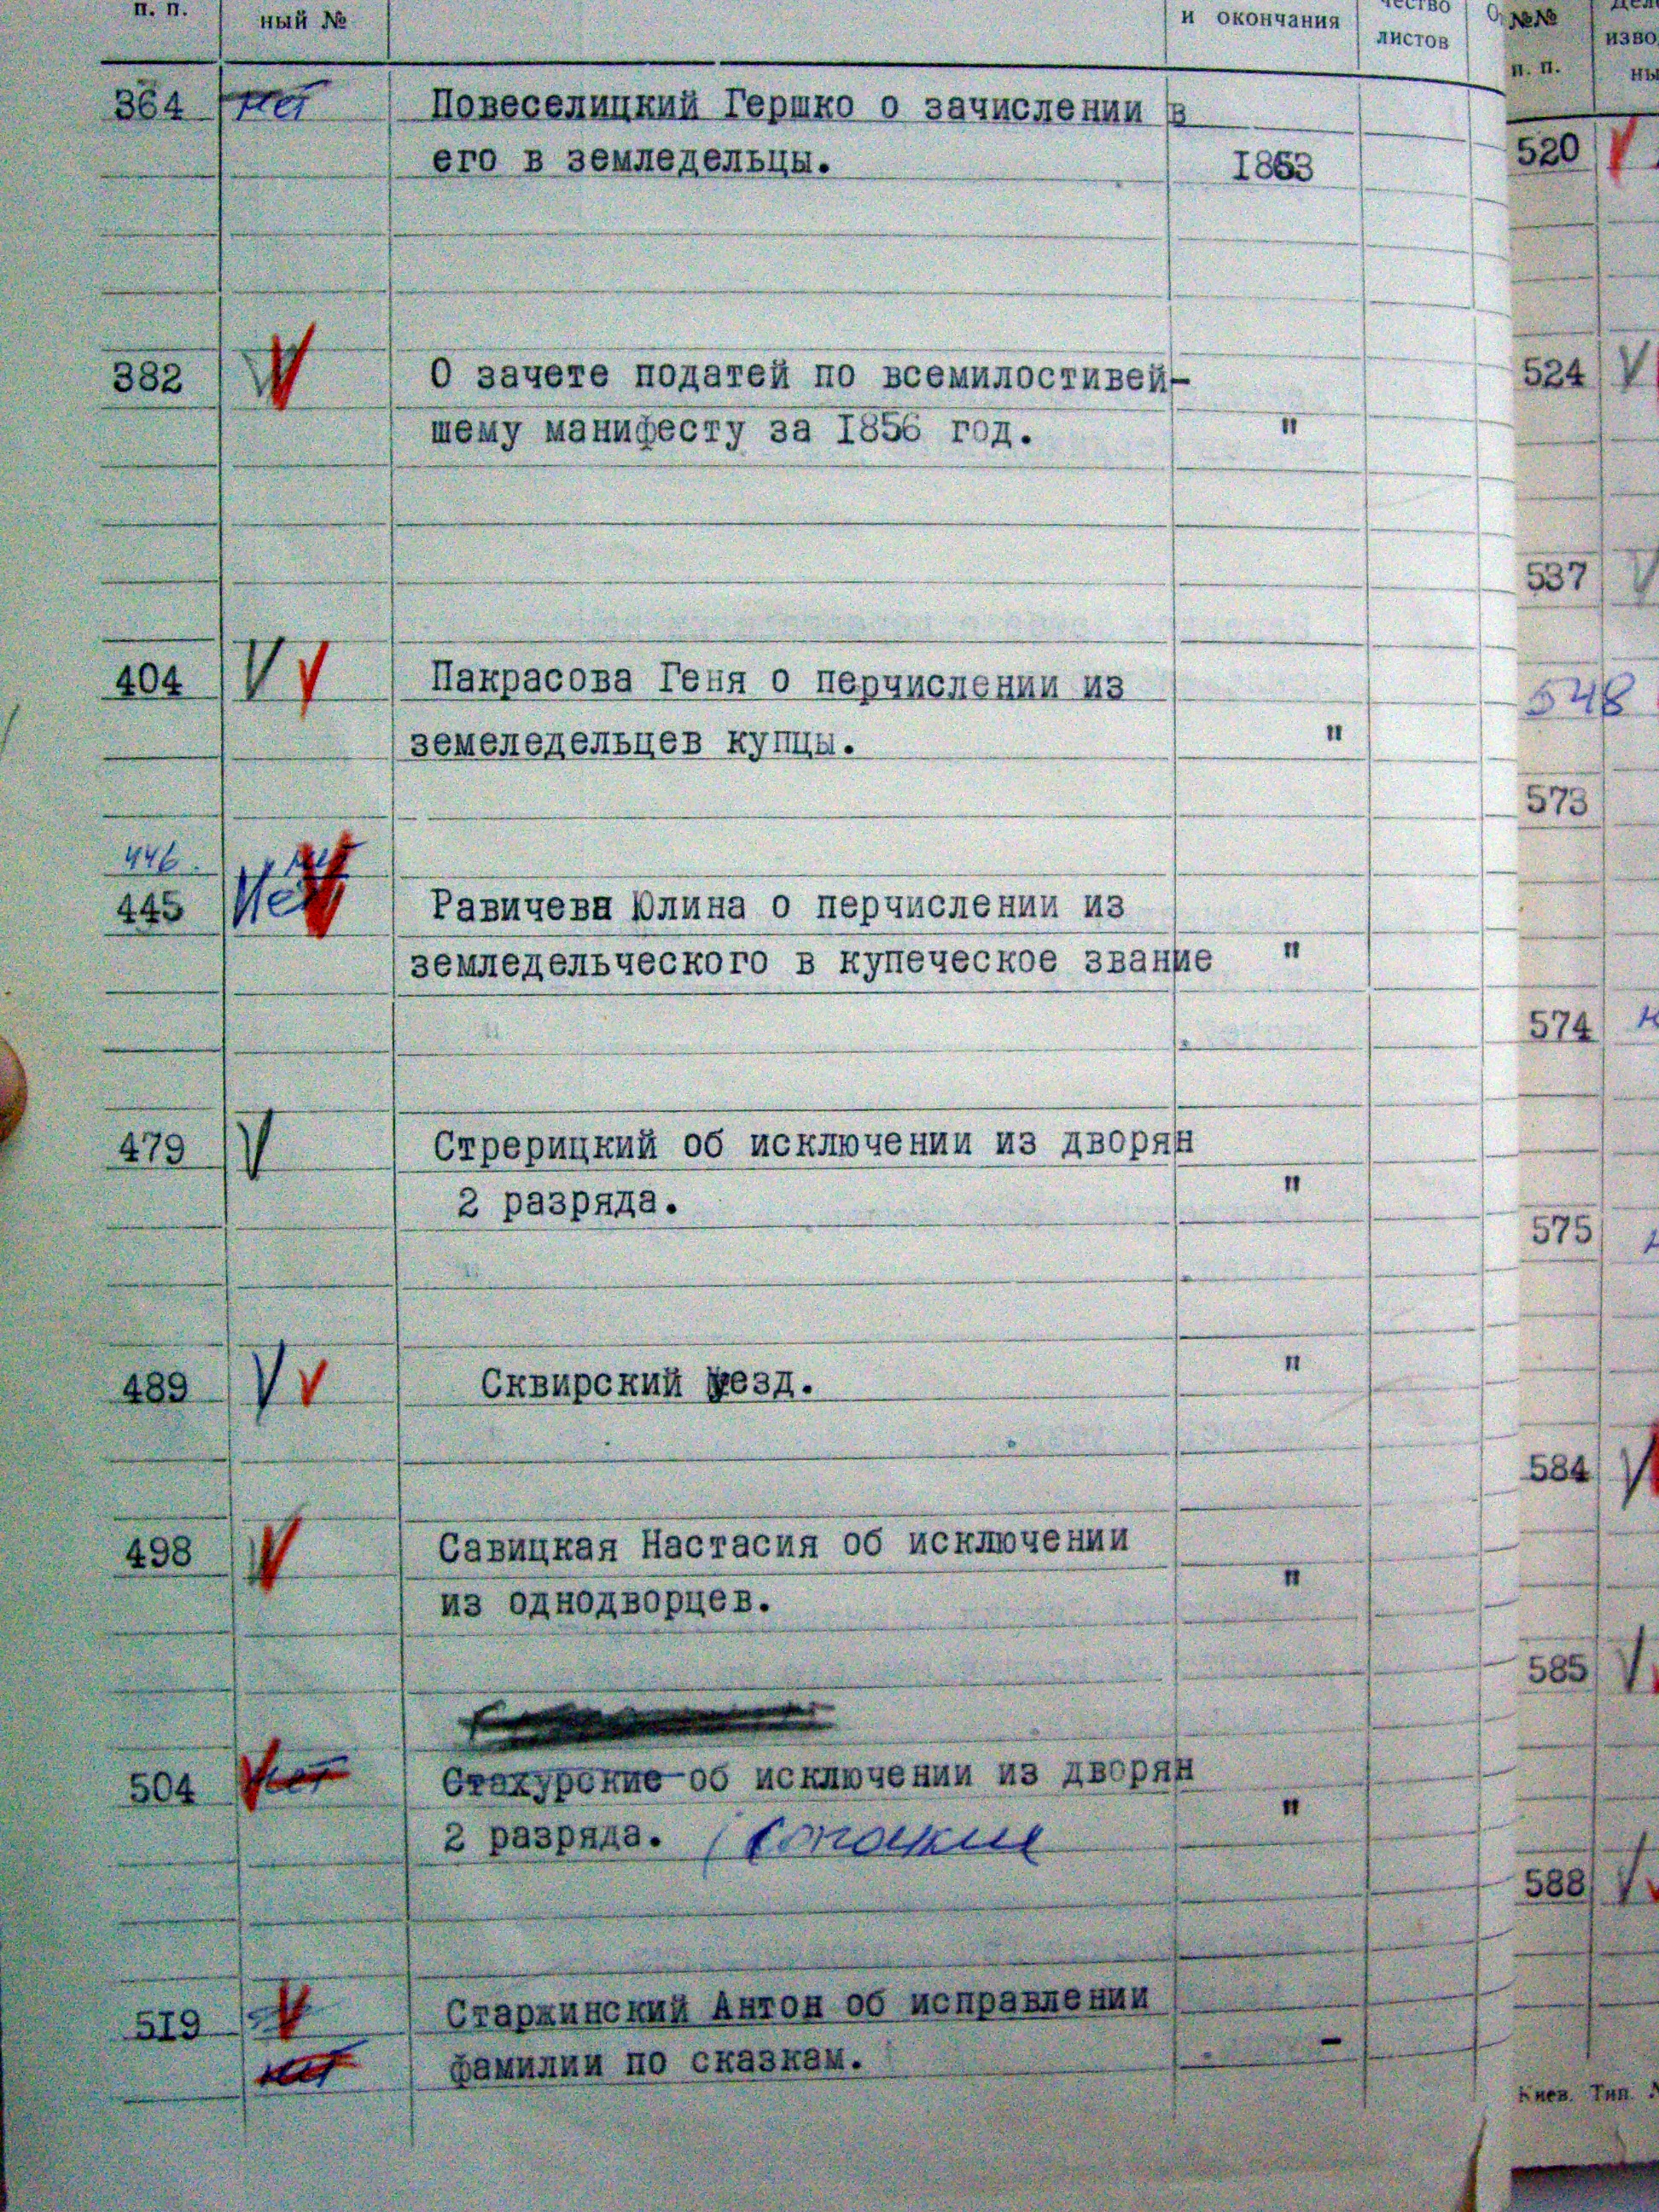 п. п.
ный №
и окончания
листов
№№
п. п.
изво
364 нет Повеселицкий Гершко о зачислении в
его в земледельцы. 1863
520
382 О зачете податей по всемилостивей-
шему манифесту за 1856 год. "
524
537
404 Пакрасова Геня о перчислении из
земеледельцев купцы. "
546
573
446.
445 Нет Равичева Юлина о перчислении из
земледельческого в купеческое звание "
574
479 Стрерицкий об исключении из дворян
2 разряда. "
575
489 Сквирский уезд. "
584
498 Савицкая Настасия об исключении
из однодворцев. "
585
504 нет об исключении из дворян
2 разряда. "
588
519 Старжинский Антон об исправлении
нет фамилии по сказкам. -
Киев. Тип.